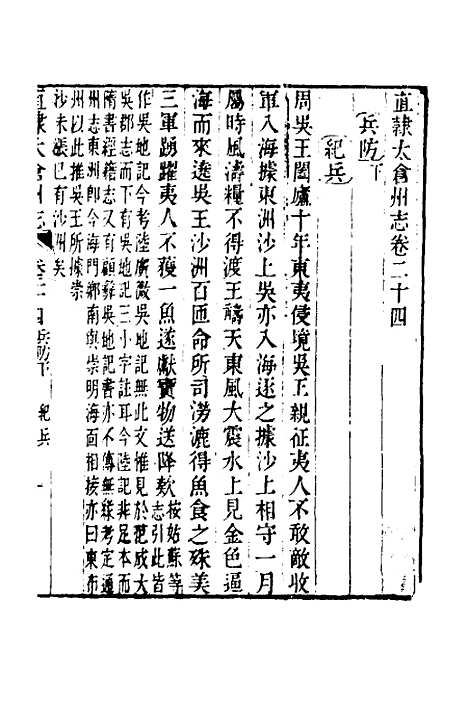 直隸太倉州志卷二十四
兵防下
紀兵
周吳王闔廬十年東夷侵境吳王親征夷人不敢敵收
軍入海據東洲沙上吳亦入海逐之據沙上相守一月
屬時風濤糧不得渡王禱天東風大震水上見金色逼
海而來遶吳王沙洲百匝命所司滂漉得魚食之殊美
三軍踴躍夷人不獲一魚遂獻寶物送降款按姑蘇等志引此皆
作吳地記今考陸廣微吳地記無此文惟見於范成大
吳郡志而下有吳地記三小字註耳今陸記非足本而
隋書經籍志又有顧彝吳地記書亦不傳無緣考定通
州志東洲卽今海門鄉南與崇明海面相接亦曰東布
州以此推吳王所據崇
沙未漲已有沙洲矣
直隸太倉州志 卷二十四兵防下 紀兵 一